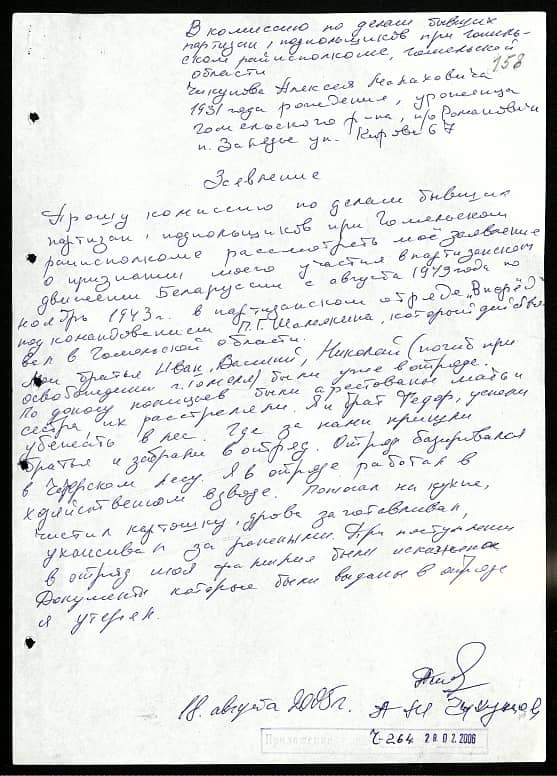 В комиссию по делам бывших
партизан, подпольщиков при Гомель-
ском райисполкоме, Гомельской
области
158
Чикунова Алексея Малаховича
1931 года рождения, уроженца
Гомельского р-на, п/о Романовичи
п. Забедье ул. Кирова 67
Заявление
Прошу комиссию по делам бывших
партизан, подпольщиков при Гомельском
райисполкоме рассмотреть моё заявление
о признании моего участия в партизанском
движении Беларуссии с августа 1943 года по
ноябрь 1943 г. в партизанском отряде "Вперёд"
под командованием П.Г. Шемякина, который действо
вал в Гомельской области.
Мои братья Иван, Василий, Николай (погиб при
освобождении г. Гомеля) были уже в отряде.
По доносу полицаев были арестованы мать и
сестра их расстреляли. Я и брат Федор, успели
убежать в лес. Где за нами пришли
братья и забрали в отряд. Отряд базировался
в Чечерском лесу. Я в отряде работал в
хозяйственом взводе. Помогал на кухне,
чистил картошку, дрова заготавливал,
ухаживал за ранеными. При поступлении
в отряд моя фамилия была искажена
Документы которые были выданы в отряде
я утерял.
18. августа 2005 г.
А М Чикунов
Приложение
Ч-264 28.02.2006